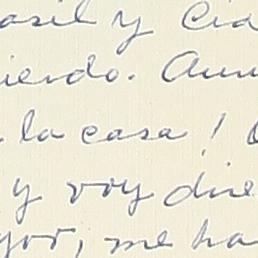 asil y Cia
iendo. Aun
la casa!
y voy dire
yor, me ha